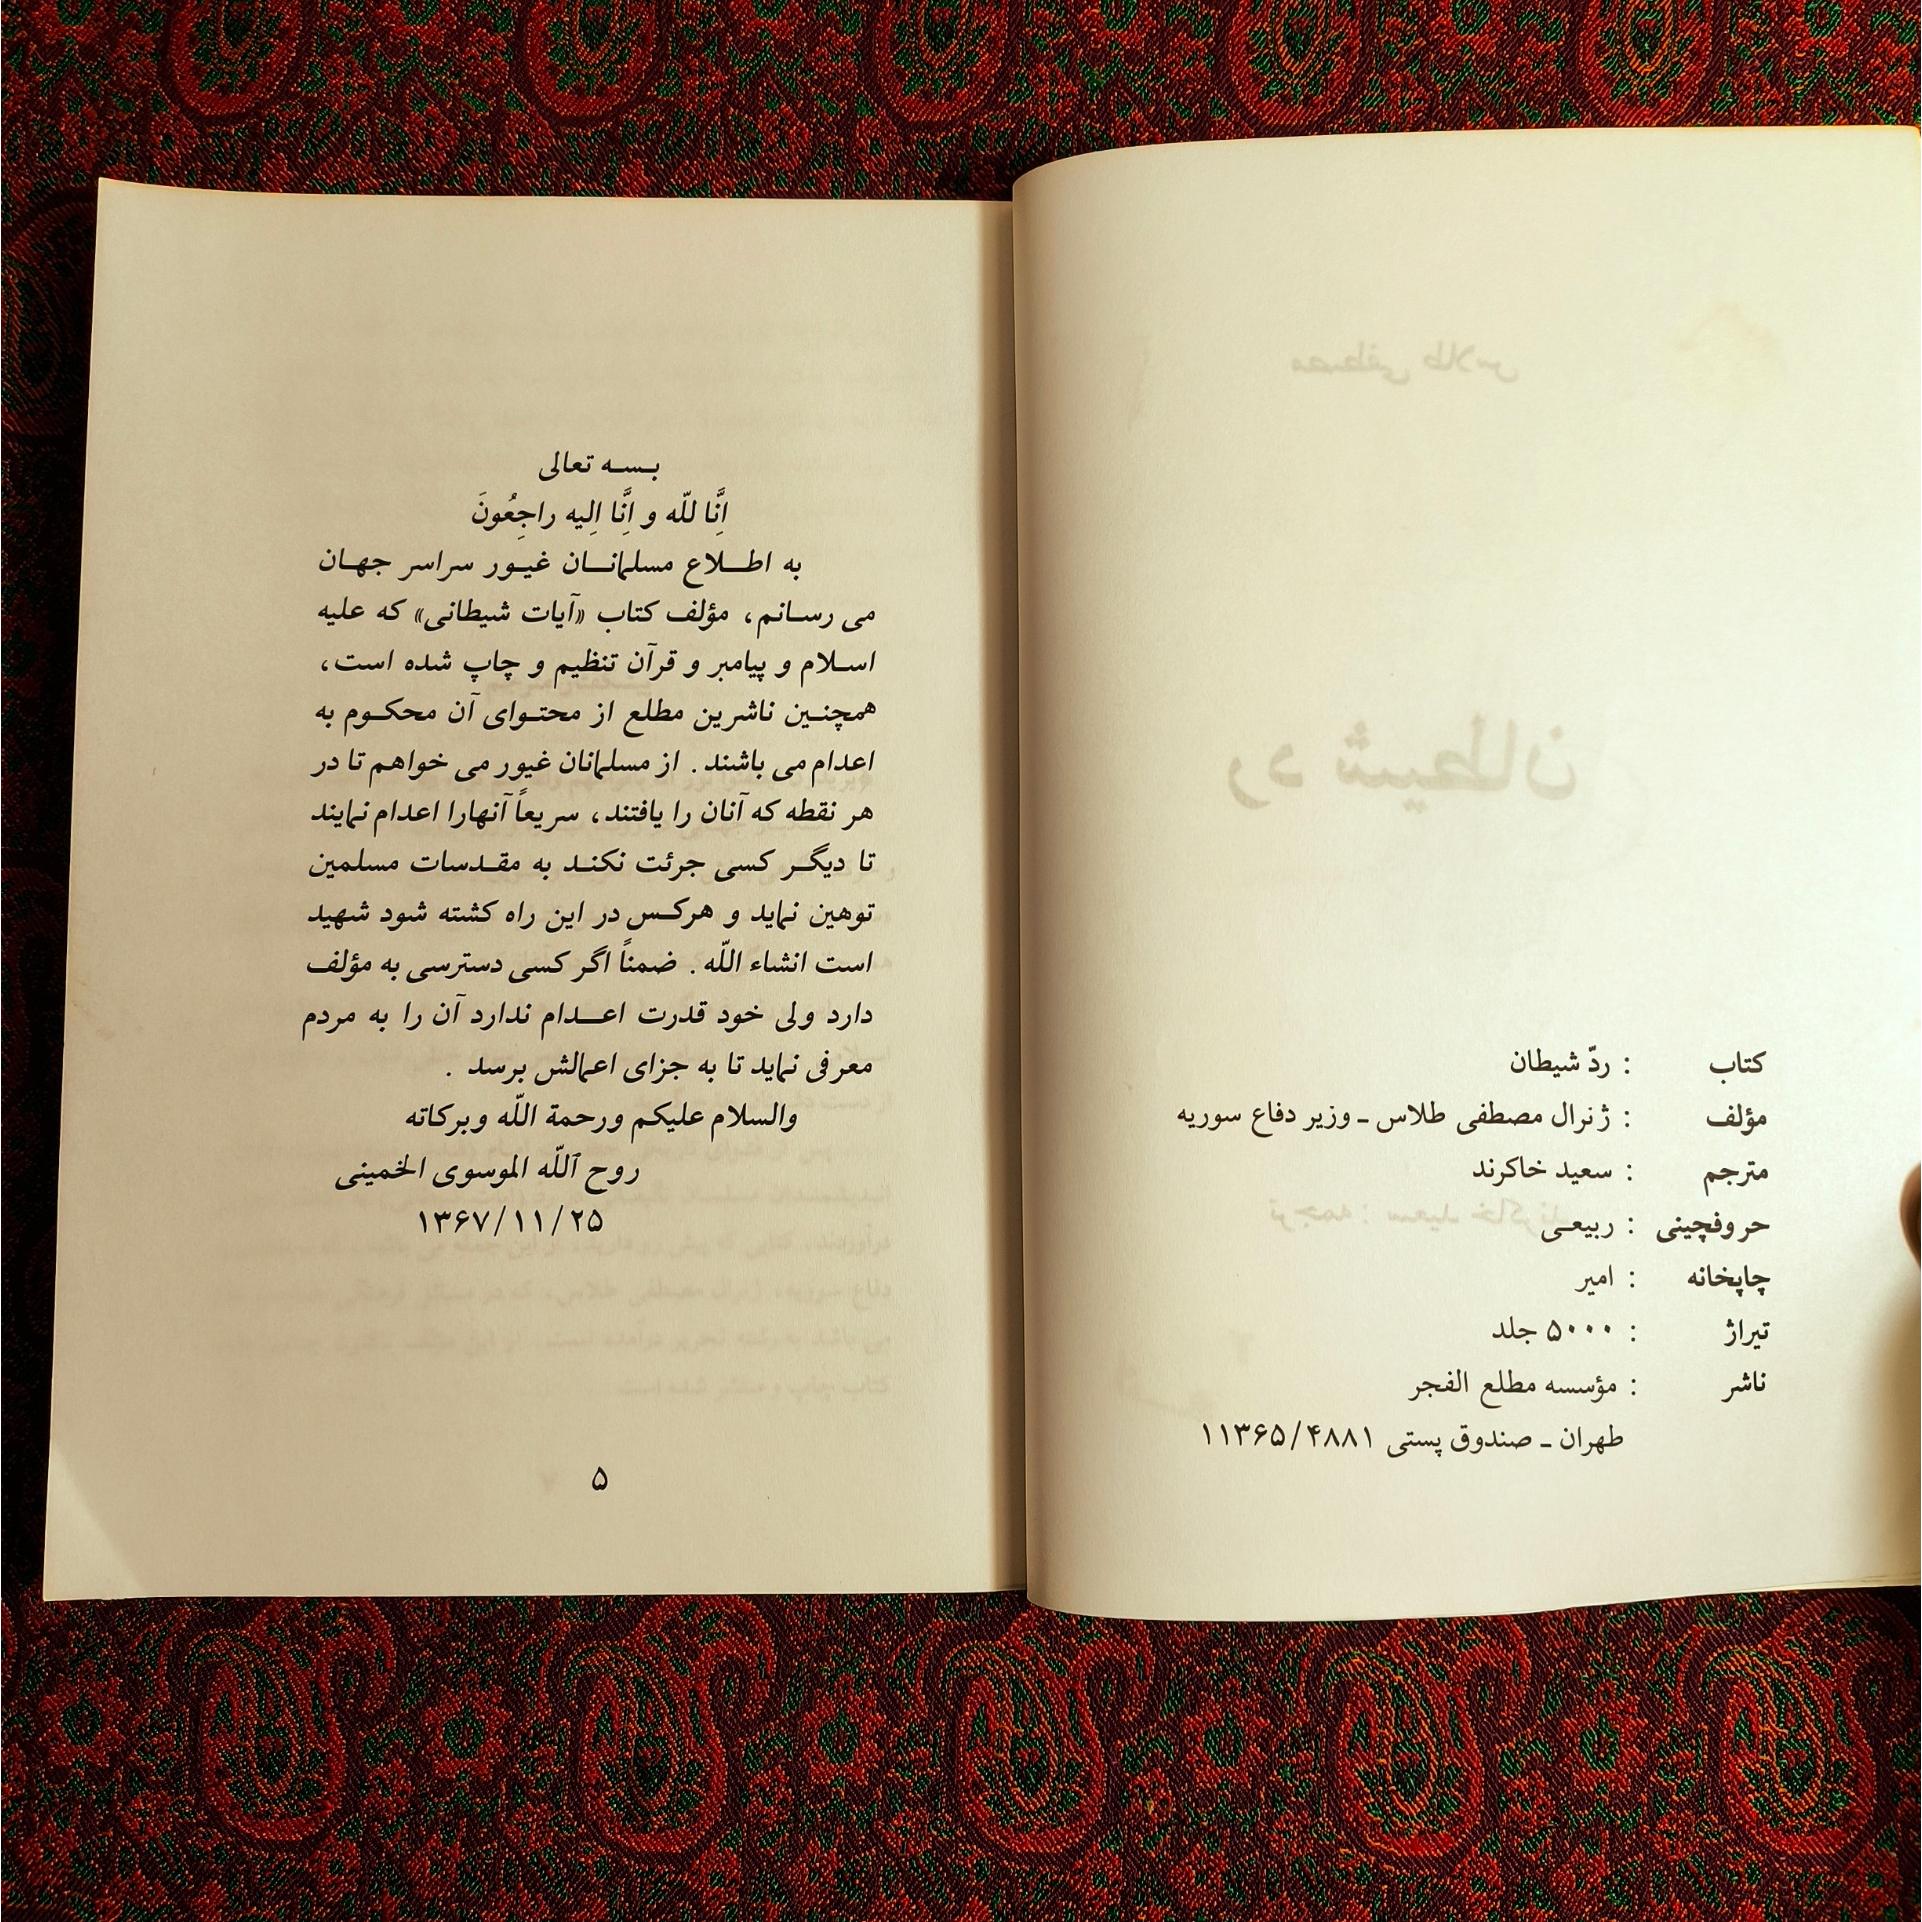 کتاب : ردّ شیطان
مؤلف : ژنرال مصطفی طلاس ـ وزیر دفاع سوریه
مترجم : سعید خاکرند
حروفچینی : ربیعی
چاپخانه : امیر
تیراژ : ۵۰۰۰ جلد
ناشر : مؤسسه مطلع الفجر
طهران ـ صندوق پستی ۱۱۳۶۵/۴۸۸۱
بسه تعالی
اِنَّا للّه و اِنَّا اِلیه راجِعُونَ
به اطلاع مسلمانان غیور سراسر جهان
می رسانم، مؤلف کتاب «آیات شیطانی» که علیه
اسلام و پیامبر و قرآن تنظیم و چاپ شده است،
همچنین ناشرین مطلع از محتوای آن محکوم به
اعدام می باشند. از مسلمانان غیور می خواهم تا در
هر نقطه که آنان را یافتند، سریعاً آنهارا اعدام نمایند
تا دیگر کسی جرئت نکند به مقدسات مسلمین
توهین نماید و هرکس در این راه کشته شود شهید
است انشاء اللّه. ضمناً اگر کسی دسترسی به مؤلف
دارد ولی خود قدرت اعدام ندارد آن را به مردم
معرفی نماید تا به جزای اعمالش برسد .
والسلام علیکم ورحمة اللّه وبرکاته
روح ٱللّه الموسوی الخمینی
۱۳۶۷/۱۱/۲۵
۵